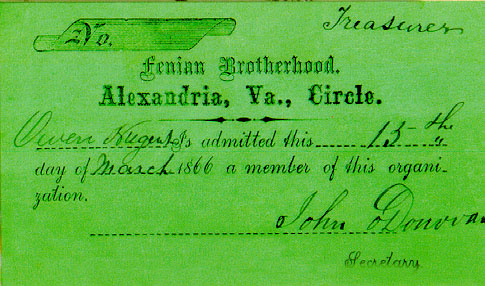 Treasurer
No.
Fenian Brotherhood.
Alexandria, Va., Circle.
Owen Nugent Is admitted this 15th
day of March 1866 a member of this organi-
zation.
John O'Donovan
Secretary.